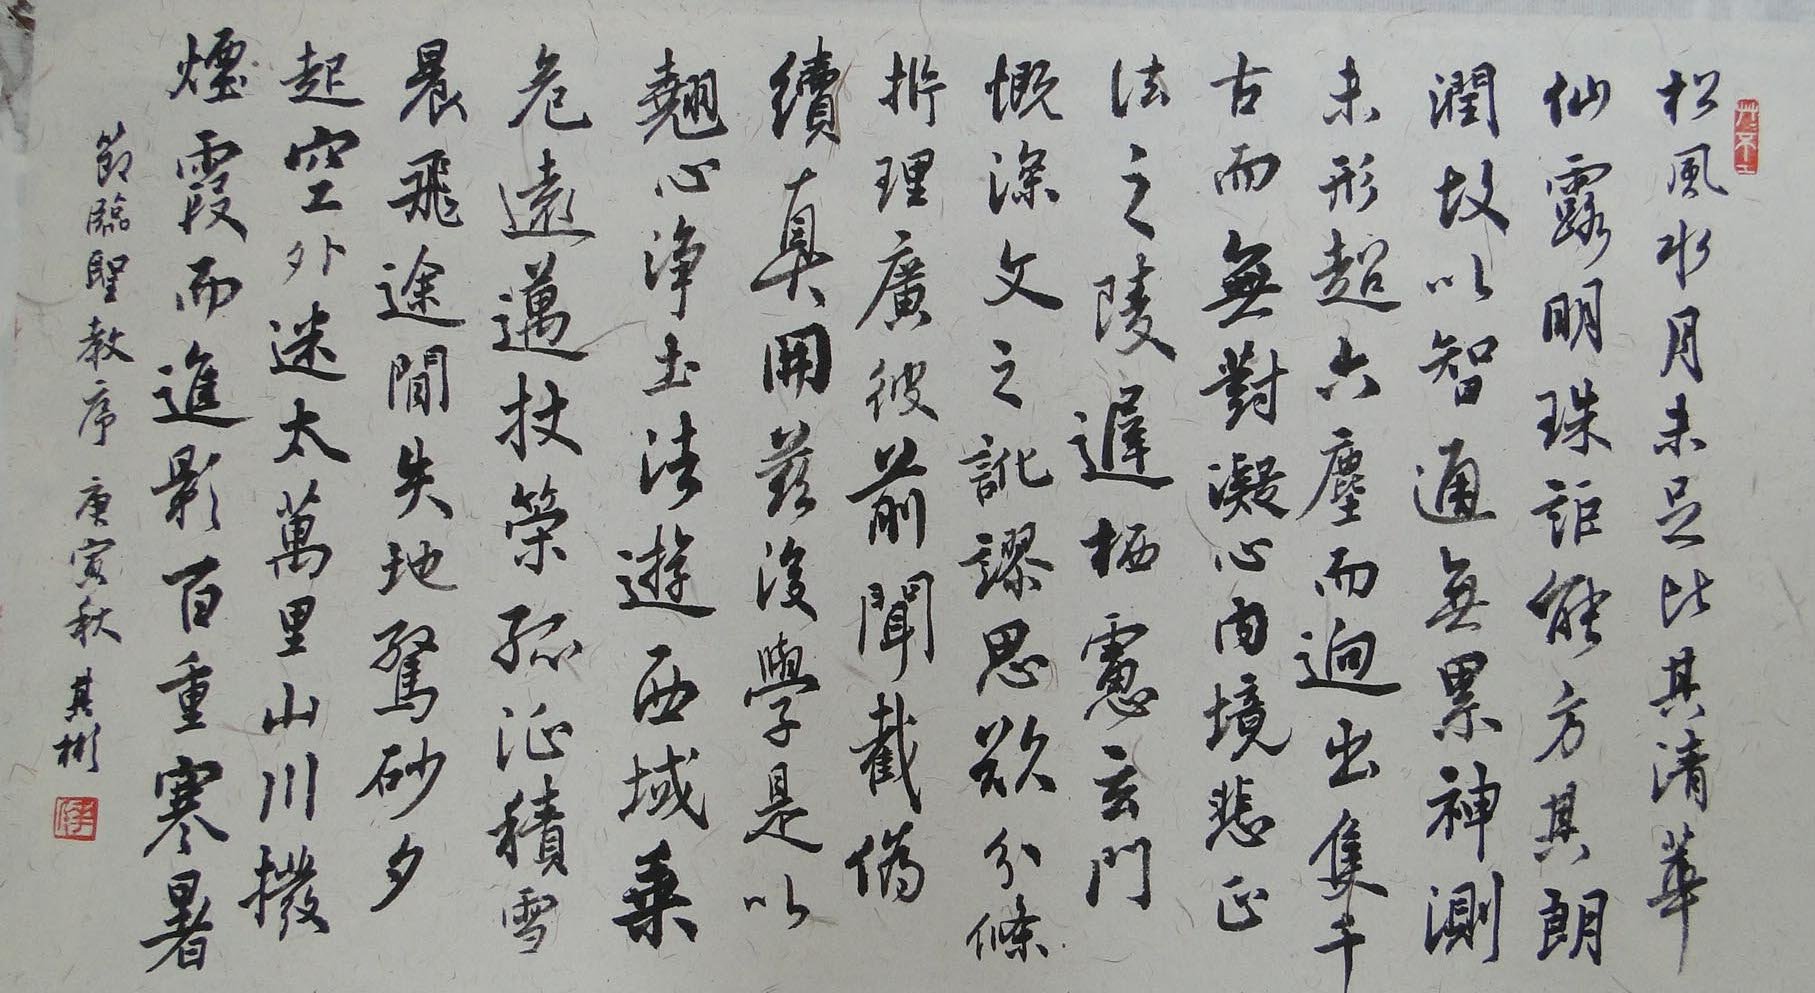 松風水月未足比其清華
仙露明珠詎能方其朗
潤故以智通無累神測
未形超六塵而迥出隻千
古而無對凝心內境悲正
法之陵遲栖慮玄門
慨深文之訛謬思欲分條
析理廣彼前聞截偽
續真開茲後學是以
翹心淨土法遊西域乘
危遠邁杖策孤征積雪
晨飛途間失地驚砂夕
起空外迷太萬里山川撥
煙霞而進影百重寒暑
節臨聖教序庚寅秋其彬